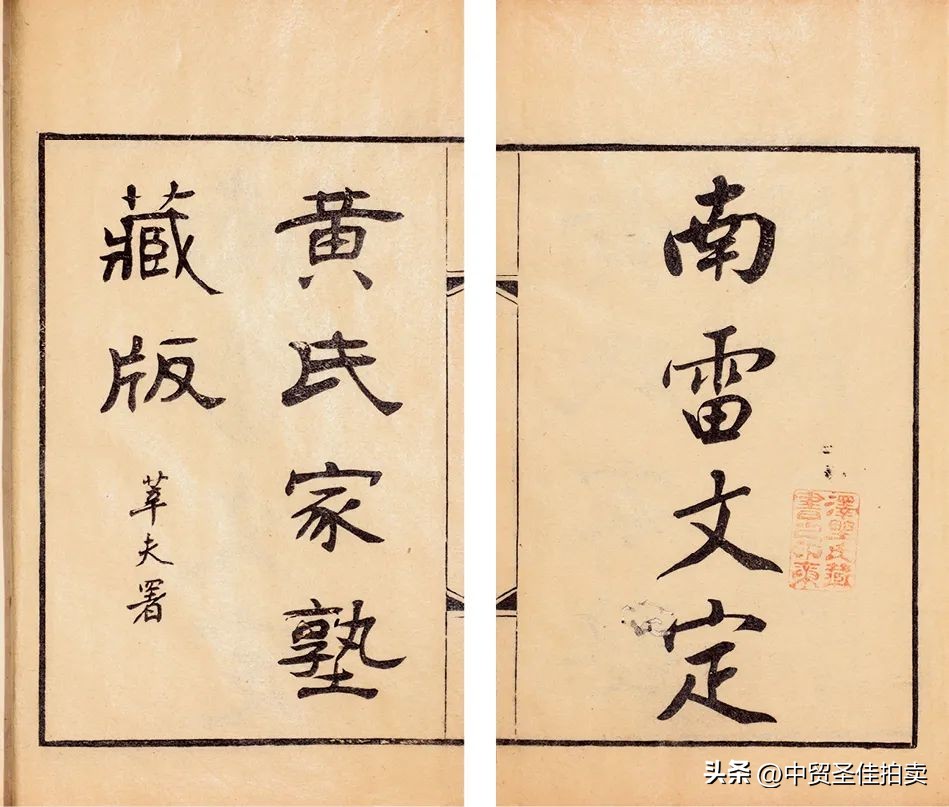 南雷文定
澤野氏藏
黄氏家塾
藏版
莘夫署
头条 @中贸圣佳拍卖